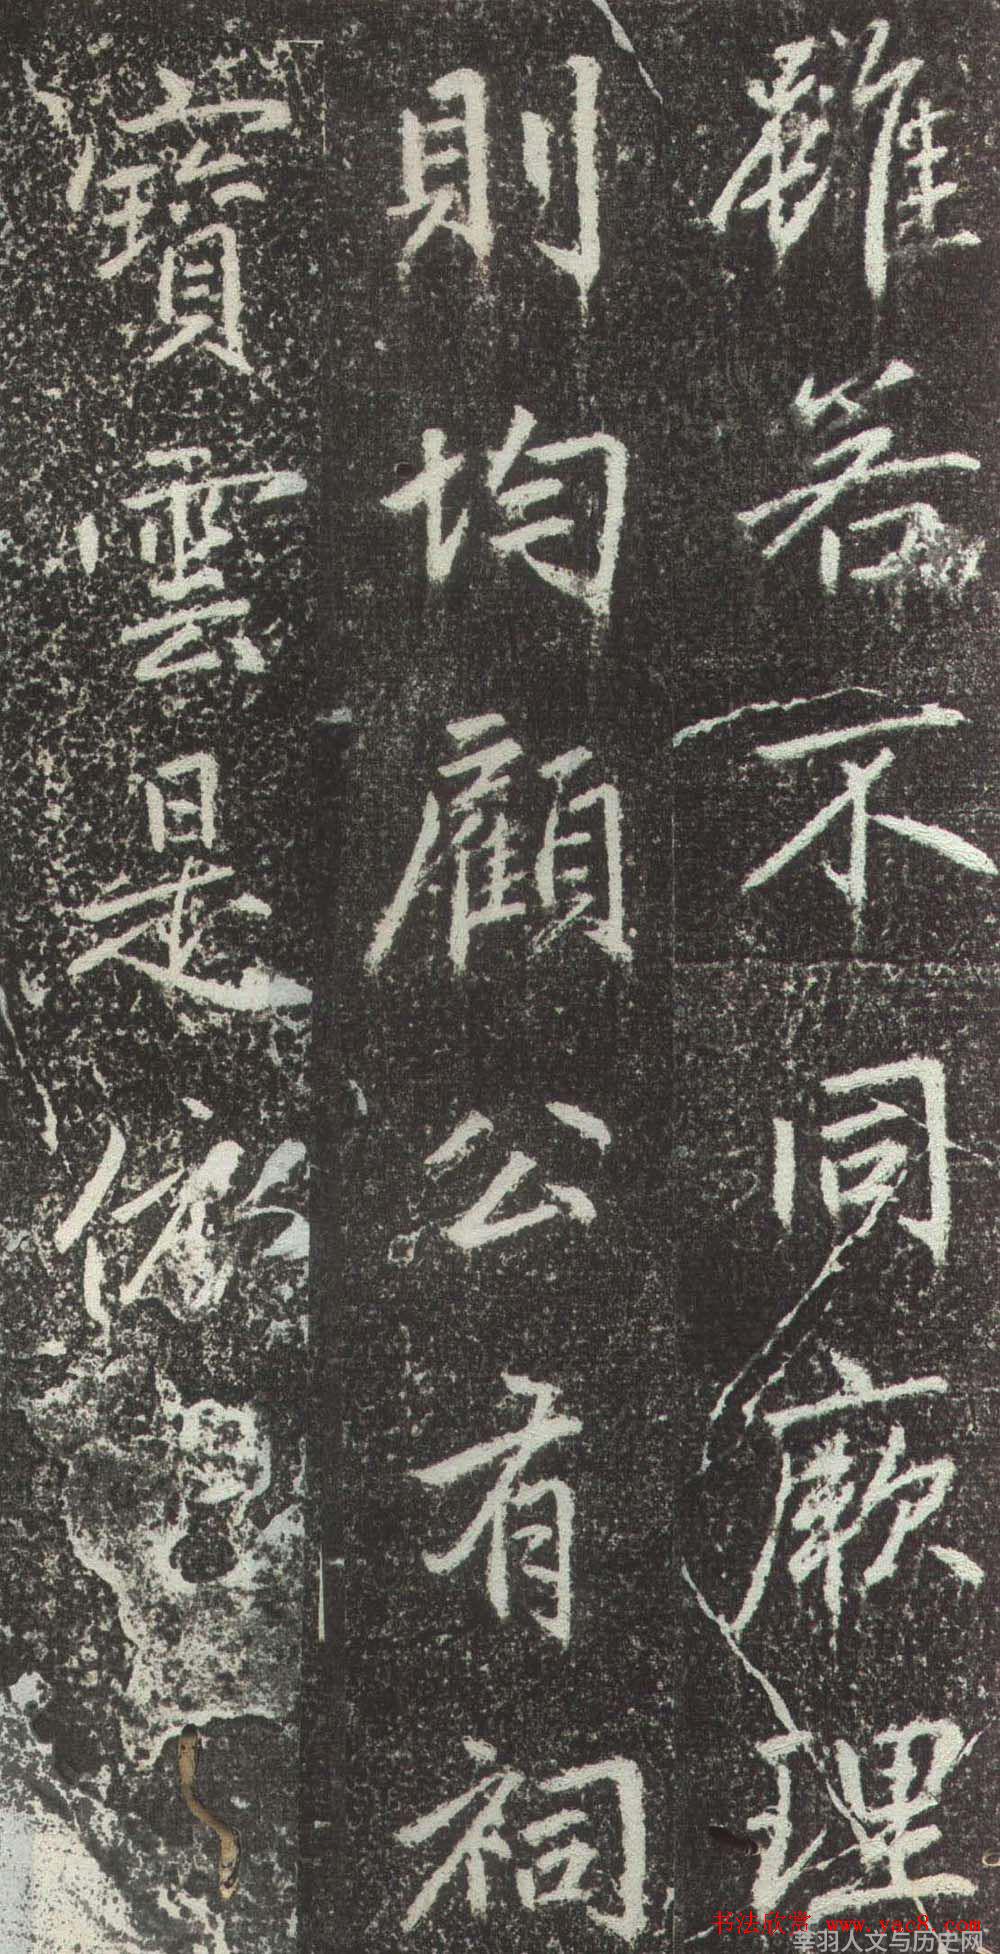 雖若不同厥理
則均顧公有祠
寶雲是
书法欣赏 www.yac8.com
羽人文与历史网